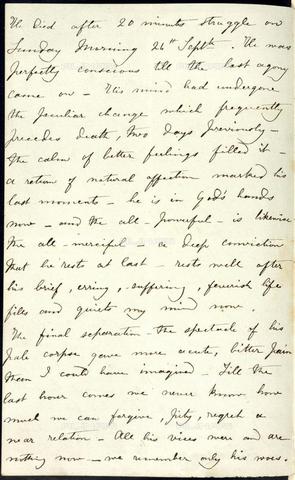 He died after 20 minutes struggle on
Sunday Morning 24th Septbr. He was
perfectly conscious till the last agony
came on - His mind had undergone
the peculiar change which frequently
precedes death, two days previously -
the calm of better feelings filled it -
a return of natural affection marked his
last moments - he is in God's hands
now - and the all-powerful - is likewise
the all-merciful - a deep conviction
that he rests at last - rests well after
his brief, erring, suffering, feverish life
fills and quiets my mind now.
The final separation - the spectacle of his
pale corpse gave more acute, bitter pain
than I could have imagined - Till the
last hour comes we never know how
much we can forgive, pity, regret a
near relation - All his vices were and are
nothing now - we remember only his woes.